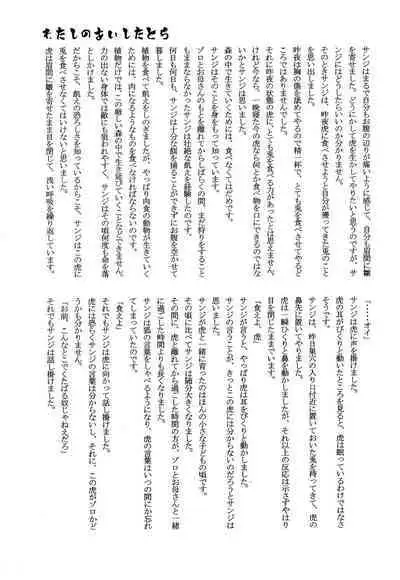 わたしのあいしたとら
サンジはまるで自分もお腹の辺りが痛いように感じて、自分も眉間に皺
を寄せました。どうにかして虎を生かしてやりたいと思うのですが、サ
ンジにはどうしたらいいのか分かりません。
サンジは、昨夜虎に食べさせようと自分が獲ってきた兎のこと
を思い出しました。
昨夜は胸の傷を舐めてやるので精一杯で、とても兎を食べさせてやると
ころではありませんでした。
それに昨夜の状態の虎に、とても兎を食べる力があったとは思えません。
けれど今なら、一晩寝た今の虎なら何とか食べ物を口にできるのではな
いかとサンジは思いました。
森の中で生きていくためには、食べなくてはだめです。
サンジはそのことを、身をもって知っていました。
ゾロとお母さんのもとを離れてからしばらくの間、まだ狩りをすること
もままならなかったサンジは壮絶な飢えを経験したのです。
何日も何日も、サンジは十分な餌を捕ることができずにお腹を空かせて
暮しました。
植物を食べて飢えをしのぎましたが、やっぱり肉食の動物が生きていく
ためには、肉になるようなものを食べなければならないのです。
植物だけでは、この厳しい森の中で生き延びていくことなどできません。
力の出ない身体では敵にも狙われやすく、サンジはその頃何度も命を落
としかけました。
だからこそ、飢えの恐ろしさを知っているからこそ、サンジはこの虎に
兎を食べさせなくてはいけないと思いました。
虎は眉間に皺を寄せたまま目を閉じて、浅い呼吸を繰り返しています。
「……オイ」
サンジは虎に声を掛けました。
虎の耳がぴくりと動いたところを見ると、虎は眠っているわけではなさ
そうです。
サンジは、昨日巣穴の入り口付近に置いておいた兎を持ってきて、虎の
鼻先に置いてやりました。
虎は一瞬ひくりと鼻を動かしましたが、それ以上の反応は示さずやはり
目を閉じたままでいます。
「食えよ、虎」
サンジが言うと、やっぱり虎は耳をぴくりと動かしました。
サンジの言うことが、きっとこの虎には分からないのだろうとサンジは
思いました。
サンジが虎と一緒に育ったのはほんの小さな子どもの頃です。
その頃に比べてサンジは随分大きくなりました。
その間に、虎と離れてから過ごした時間の方が、ゾロとお母さんと一緒
に過ごした時間よりも長くなりました。
サンジは狐の言葉をしゃべるようになり、虎の言葉はいつの間にか忘れ
てしまっていたのです。
「食えよ」
それでもサンジは虎に向かって話し掛けました。
虎には恐らくサンジの言葉は分からないし、それに、この虎がゾロかど
うかも分かりません。
それでもサンジは話し掛けました。
「お前、こんなとこでくたばる奴じゃねえだろ」